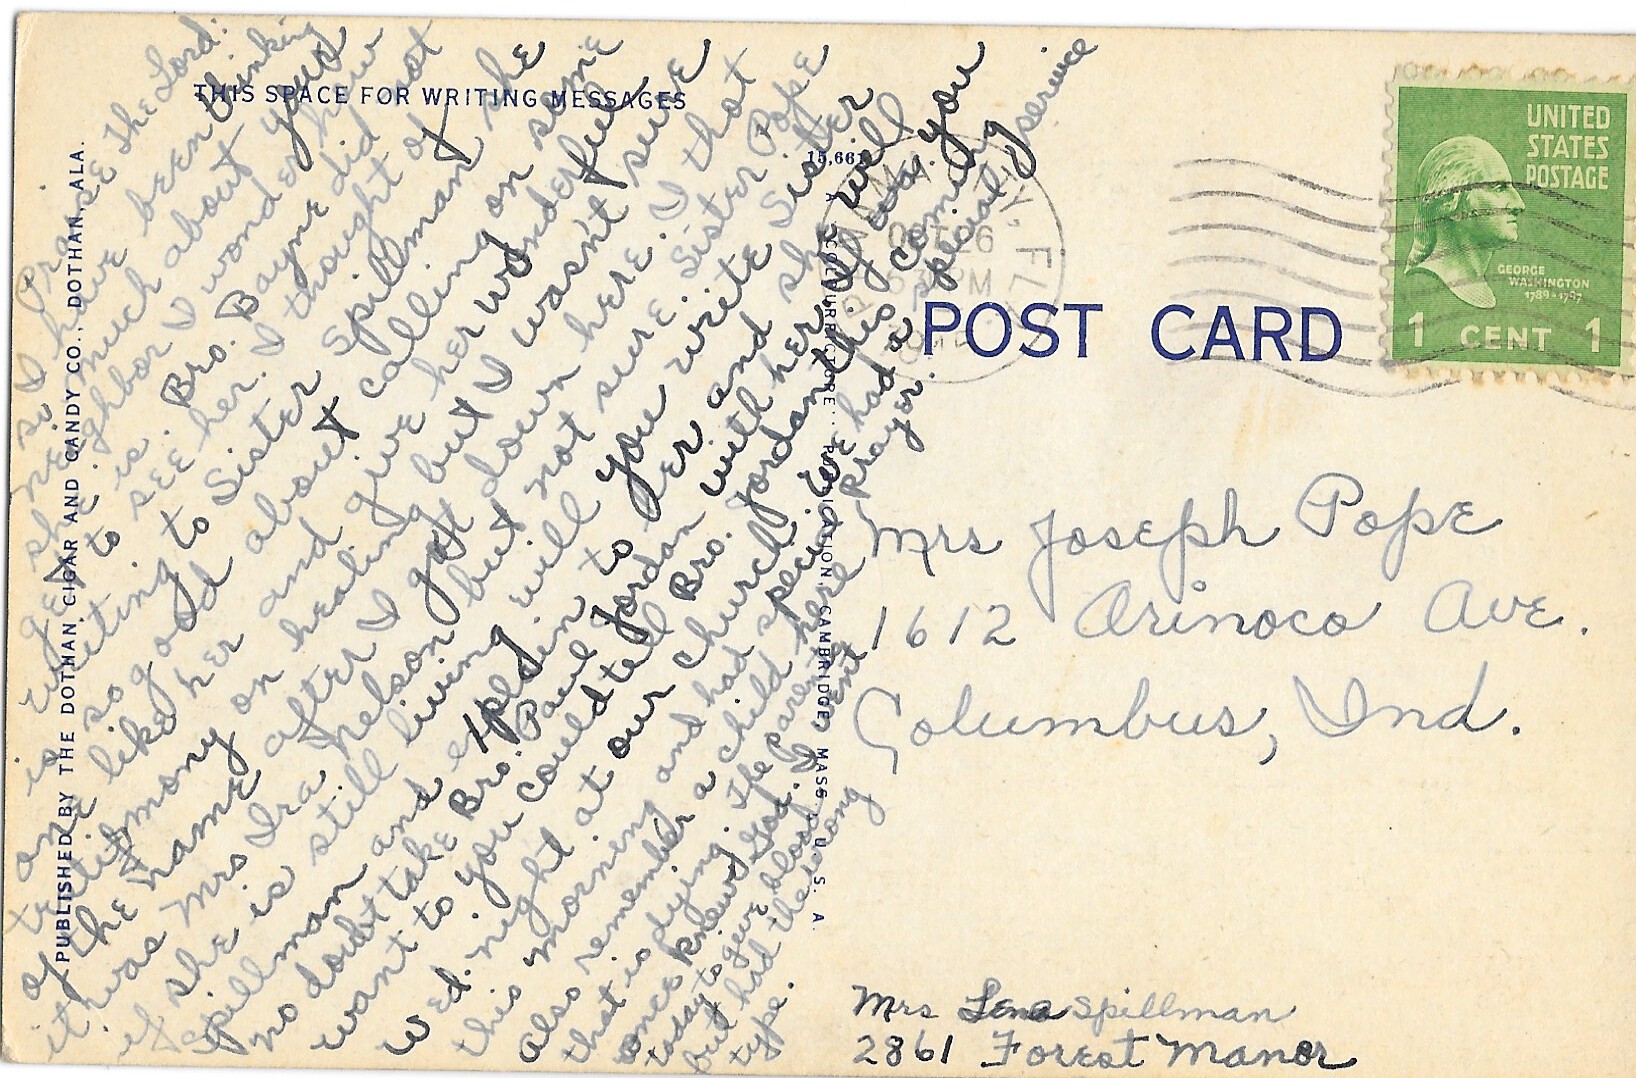 THIS SPACE FOR WRITING MESSAGES
Praise The Lord:
I have been thinking
so much about your
neighbor I wonder how
she is. Bro. Bayne did not
even get to see her. I thought of
writing to Sister Spillman she
is so good about calling on some
one like her and give her wonderful
testimony on healing but I wasn't sure
of the name after I got down here. I that
it was Mrs Ira Nelson but not sure. Sister Pope
if she is still living will you write Sister
Spillman and explain to her and she will
no doubt take Bro. Paul Jordan with her. If you
want to you could tell Bro. Jordan this coming
Wed. night at our church. We had a special service
this morning and had special prayer.
Also remember a child here
that is dying. The parents
once knew God. I went
today to give blood
but had the wrong
type.
PUBLISHED BY THE DOTHAN CIGAR AND CANDY CO., DOTHAN, ALA.
15,661
A "COLOURPICTURE" PUBLICATION, CAMBRIDGE, MASS., U. S. A.
PANAMA CITY, FLA.
OCT 26
PM
UNITED
STATES
POSTAGE
GEORGE
WASHINGTON
1789-1797
1 CENT 1
POST CARD
Mrs Joseph Pope
1612 Orinoco Ave.
Columbus, Ind.
Mrs Lena Spillman
2861 Forest Manor